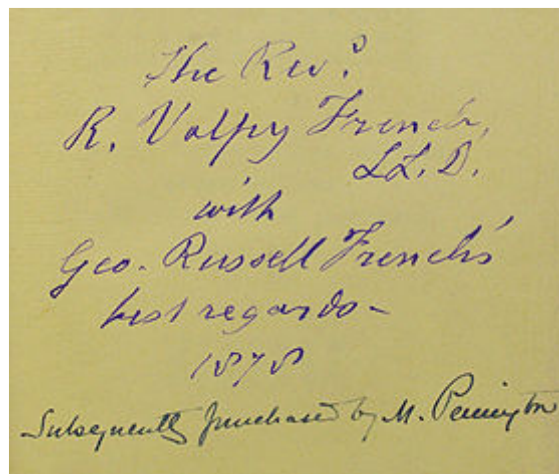 The Revd.
R. Valpy French,
LL.D.
with
Geo. Russell French's
best regards-
1878
Subsequently purchased by M. Penington